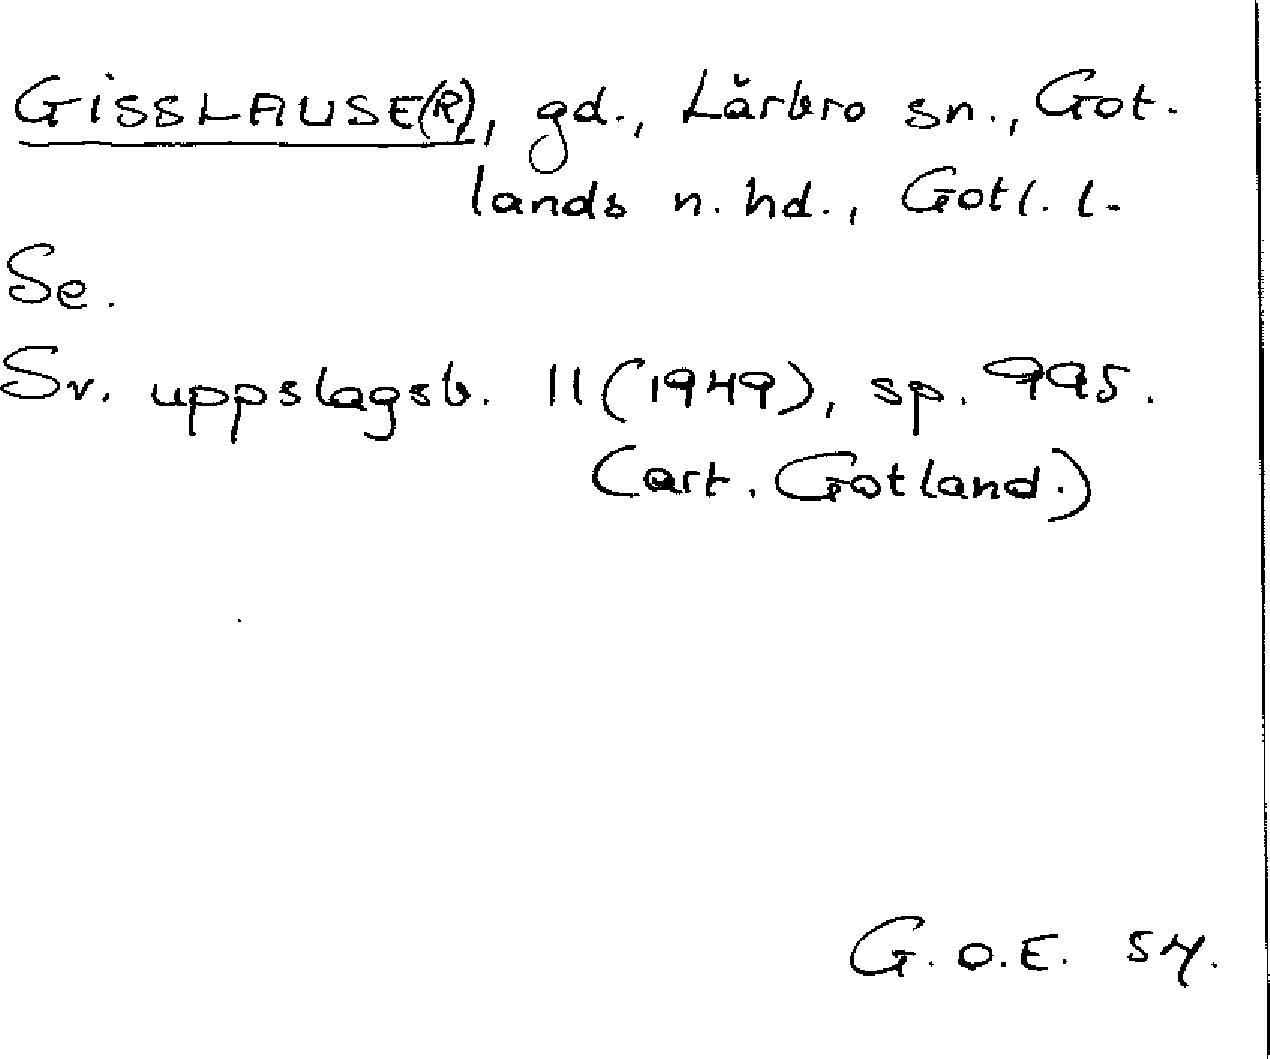 GISSLAUSE(R), gd., Lärbro sn., Got-
lands n. hd., Gotl. l.
Se.
Sv. uppslagsb. 11 (1949), sp. 995.
(art. Gotland.)
G.O.E. 54.